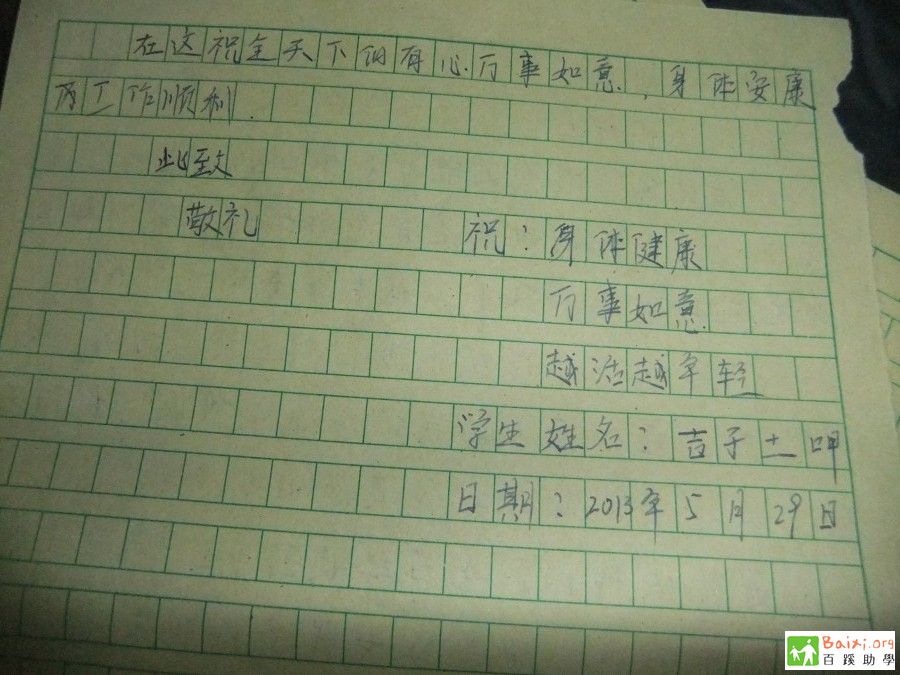 在这祝全天下的有心万事如意,身体安康
两工作顺利.
此致
敬礼
祝:身体健康
万事如意
越活越年轻
学生姓名:吉子土呷
日期:2013年5月29日
Baixi.org
百蹊助學